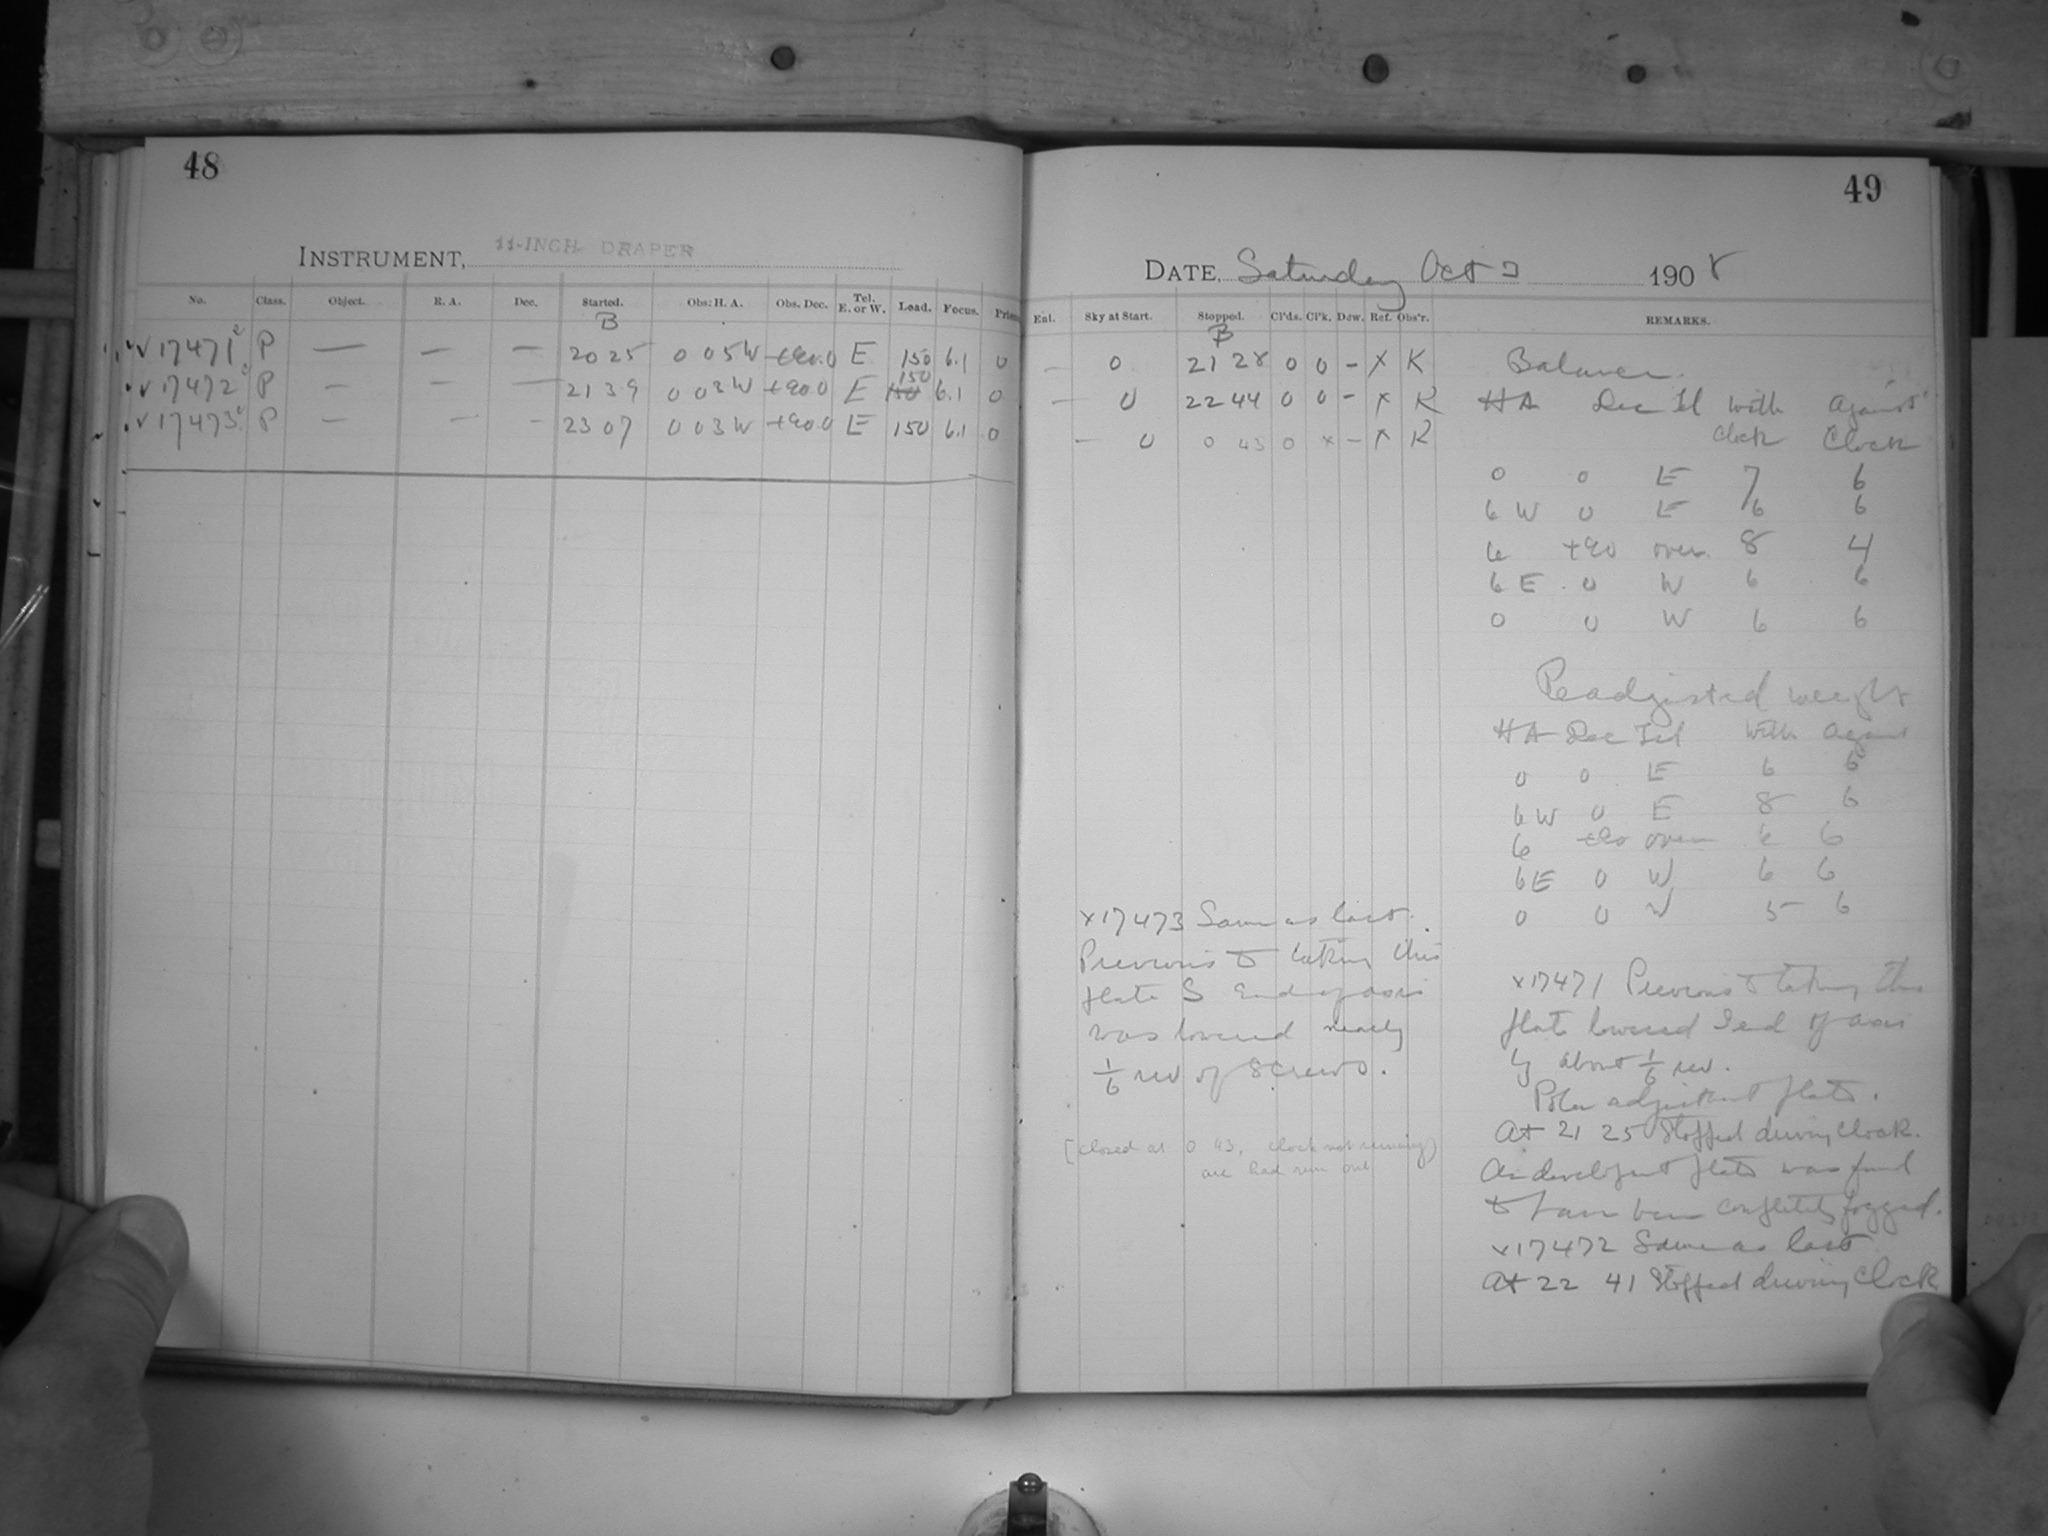 48
INSTRUMENT, 11-INCH DRAPER
No. Class. Object. R. A. Dec. Started. Obs. H. A. Obs. Dec. Tel. E. or W. Load. Focus. Prism
B
17471 P — — — 20 25 0 05W +90.0 E 150 6.1 0
17472 P — — — 21 39 0 03W +90.0 E 150 6.1 0
17473 P — — — 23 07 0 03W +90.0 E 150 6.1 0
49
DATE, Saturday Oct 3 1908
Ent. Sky at Start. Stopped. Cl'ds. Cl'k. Dew. Ref. Obs'r. REMARKS.
B
— 0 21 28 0 0 – x K
— 0 22 44 0 0 – x K
— 0 0 43 0 x – x K
Balance.
HA Dec Tel with against
clock clock
0 0 E 7 6
6 W 0 E 6 6
6 +90 over 8 4
6 E 0 W 6 6
0 0 W 6 6
Readjusted weight
HA Dec Tel with against
0 0 E 6 6
6 W 0 E 8 6
6 +90 over 6 6
6 E 0 W 6 6
0 0 W 5 6
x17471 Previous to taking this
plate lowered S end of axis
by about 1/6 rev.
Polar adjustment plate.
At 21 25 stopped driving clock.
On development plate was found
to have been completely fogged.
x17472 Same as last
At 22 41 stopped driving clock
x17473 Same as last.
Previous to taking this
plate S end of axis
was lowered nearly
1/6 rev of screws.
[closed at 0 43, clock not running)
had run out